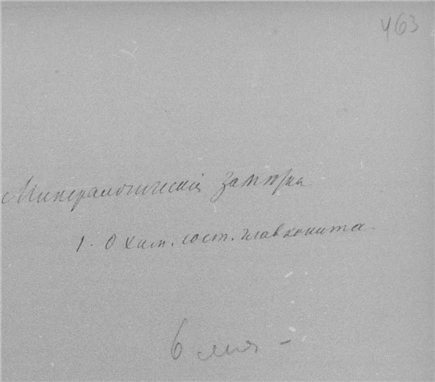 463
Минералогическія замѣтки
1. О хим. сост. глауконита.